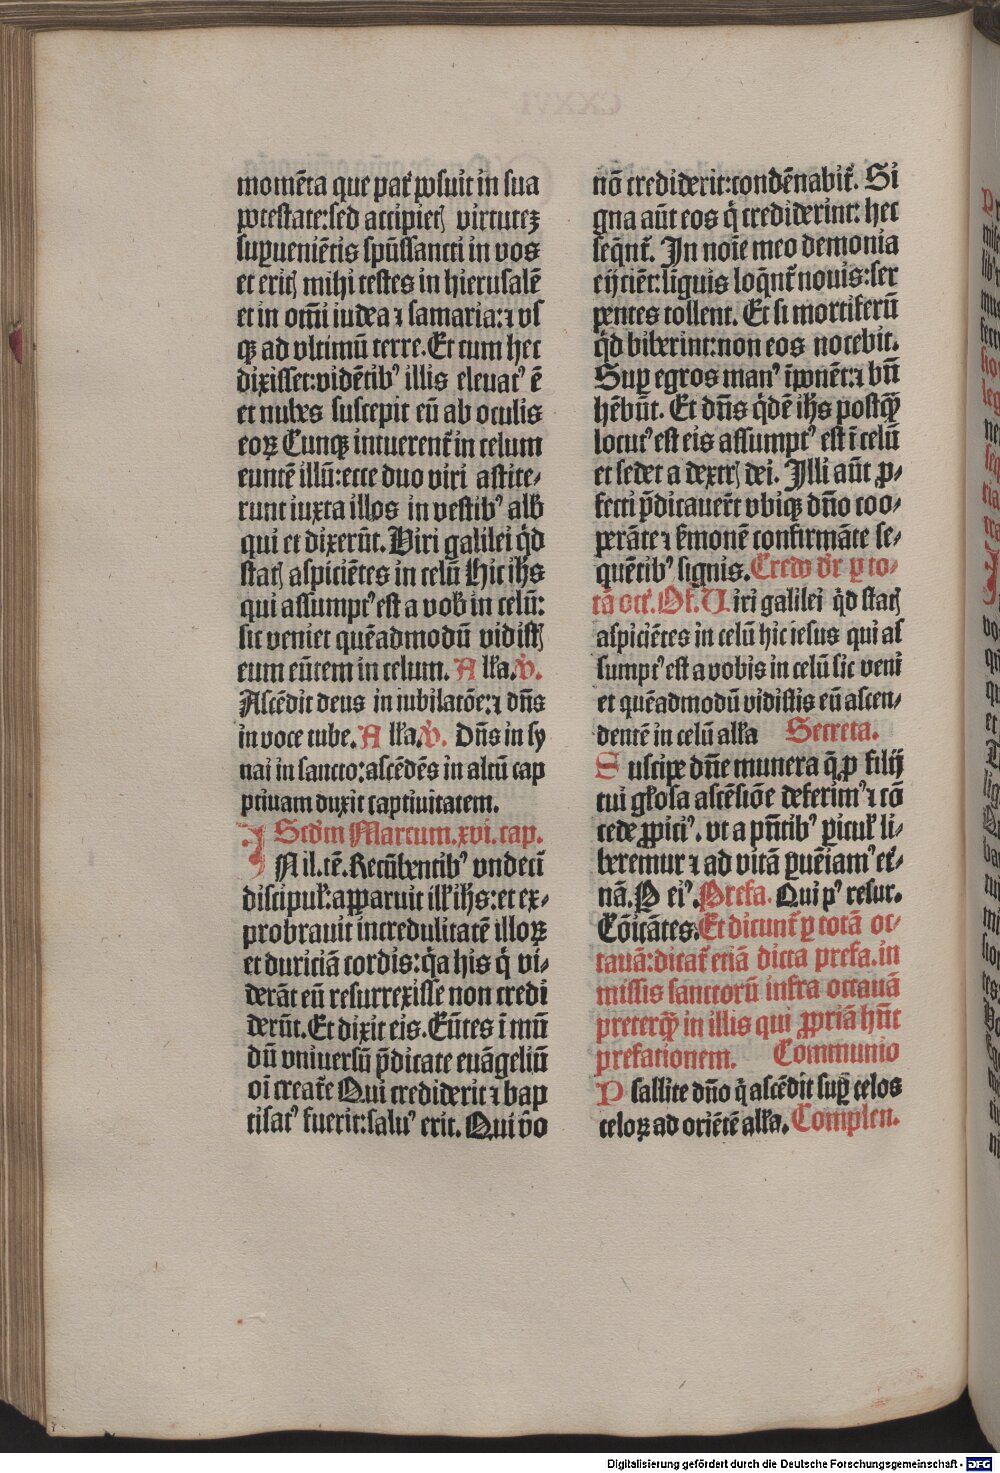 momēta que pat᷑ posuit in sua
potestate:sed accipietꝭ virtuteꝫ
suꝑueniētis spūssancti in vos
et eritꝭ mihi testes in hierusalē
et in om̄i iudea ⁊ samaria:⁊ vs
qꝫ ad vltimū terre. Et cum hec
dixisset:vidētibꝰ illis eleuatꝰ ē
et nubes suscepit eū ab oculis
eoꝝ Cunqꝫ intuerent᷑ in celum
euntē illū:ecce duo viri astite-
runt iuxta illos in vestibꝰ alb̄
qui et dixerūt. Viri galilei qͥd
statꝭ aspiciētes in celū Hic ihs̄
qui assumptꝰ est a vob̄ in celū:
sic veniet quēadmodū vidistꝭ
eum eūtem in celum. Alľa. v̓.
Ascēdit deus in iubilatōe:⁊ dn̄s
in voce tube. Alľa. v̓. Dn̄s in sy
nai in sancto:ascēdēs in altū cap
ptiuam duxit captiuitatem.
Scd̓m Marcum.xvi.cap.
IN il.tē. Recūbentibꝰ vndecī
discipuľ:apparuit illľ ihs̄:et ex-
probrauit incredulitatē illoꝝ
et duriciā cordis:qͥa his qͥ vi-
derāt eū resurrexisse non credi
derūt. Et dixit eis. Eūtes ī mū
dū vniuersū p̄dicate euāgeliū
oī creat᷑e Qui crediderit ⁊ bap
tisatꝰ fuerit:saluꝰ erit. Qui v̓o
nō crediderit:condēnabit᷑. Si
gna aūt eos qͥ crediderint: hec
seqn̄t᷑. In noīe meo demonia
eijciēt:līguis loqn̄t᷑ nouis:ser
pentes tollent. Et si mortiferū
qͥd biberint:non eos nocebit.
Suꝑ egros manꝰ īponēt:⁊ bn̄
hēbūt. Et dn̄s qͥdē ihs̄ postqͣꝫ
locutꝰ est eis assumptꝰ est ī celū
et sedet a dextrꝭ dei. Illi aūt ꝓ-
fecti p̄dicauer̄t vbiqꝫ dn̄o coo-
perāte ⁊ s̓monē confirmāte se-
quētibꝰ signis. Credo dr̄ ꝑ to-
tā oct᷑. Of. Viri galilei qͥd statꝭ
aspiciētes in celū hic iesus qui as
sumptꝰ est a vobis in celū sic veni
et quēadmodū vidistis eū ascen-
dentē in celū alľa Secreta.
Suscipe dn̄e munera q̄ ꝓ filij
tui gľosa ascēsiōe deferimꝰ ⁊ cō
cede ꝓpiciꝰ. vt a pn̄tibꝰ ꝑicuľ li-
beremur ⁊ ad vitā ꝑuēiamꝰ et̓-
nā. P eiꝰ. Prefa. Qui pꝰ resur.
Cōicātes. Et dicunt᷑ ꝑ totā oc-
tauā:dicat᷑ etiā dicta prefa. in
missis sanctorū infra octauā
preterqͣꝫ in illis qui ꝓpriā hn̄t
prefationem. Communio
Psallite dn̄o qͥ ascēdit suꝑ celos
celoꝝ ad oriētē alľa. Complen.
Digitalisierung gefördert durch die Deutsche Forschungsgemeinschaft - DFG